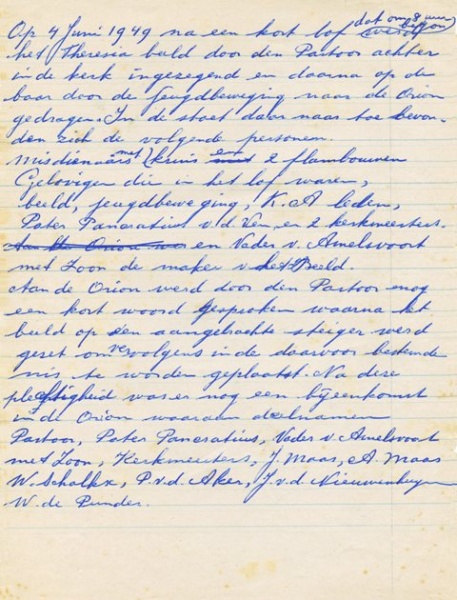 Op 4 Juni 1949 na een kort lof dat om 8 uur begon
het Theresia beeld door den Pastoor achter
in de kerk ingezegend en daarna op de
baar door de Jeugdbeweging naar de Orion
gedragen. In de stoet daar naar toe bevon-
den zich de volgende personen.
Misdienaars met kruis en 2 flambouwen
Gelovigen die in het lof waren,
beeld, jeugdbeweging, K.A leden,
Pater Pancratius v.d. Ven, en 2 kerkmeesters.
en Vader v. Amelsvoort
met Zoon de maker v. het Beeld.
Aan de Orion werd door den Pastoor nog
een kort woord gesproken waarna het
beeld op een aangebachte steiger werd
gezet om vervolgens in de daarvoor bestemde
nis te worden geplaatst. Na deze
plechtigheid was er nog een bijeenkomst
in de Orion waaraan deelnamen
Pastoor, Pater Pancratius, Vader v. Amelsvoort
met Zoon, Kerkmeesters, J. Maas, A. Maas
W. Scholtx, P. v.d. Aker, J. v.d. Nieuwenhuyzen
W. de Punder.